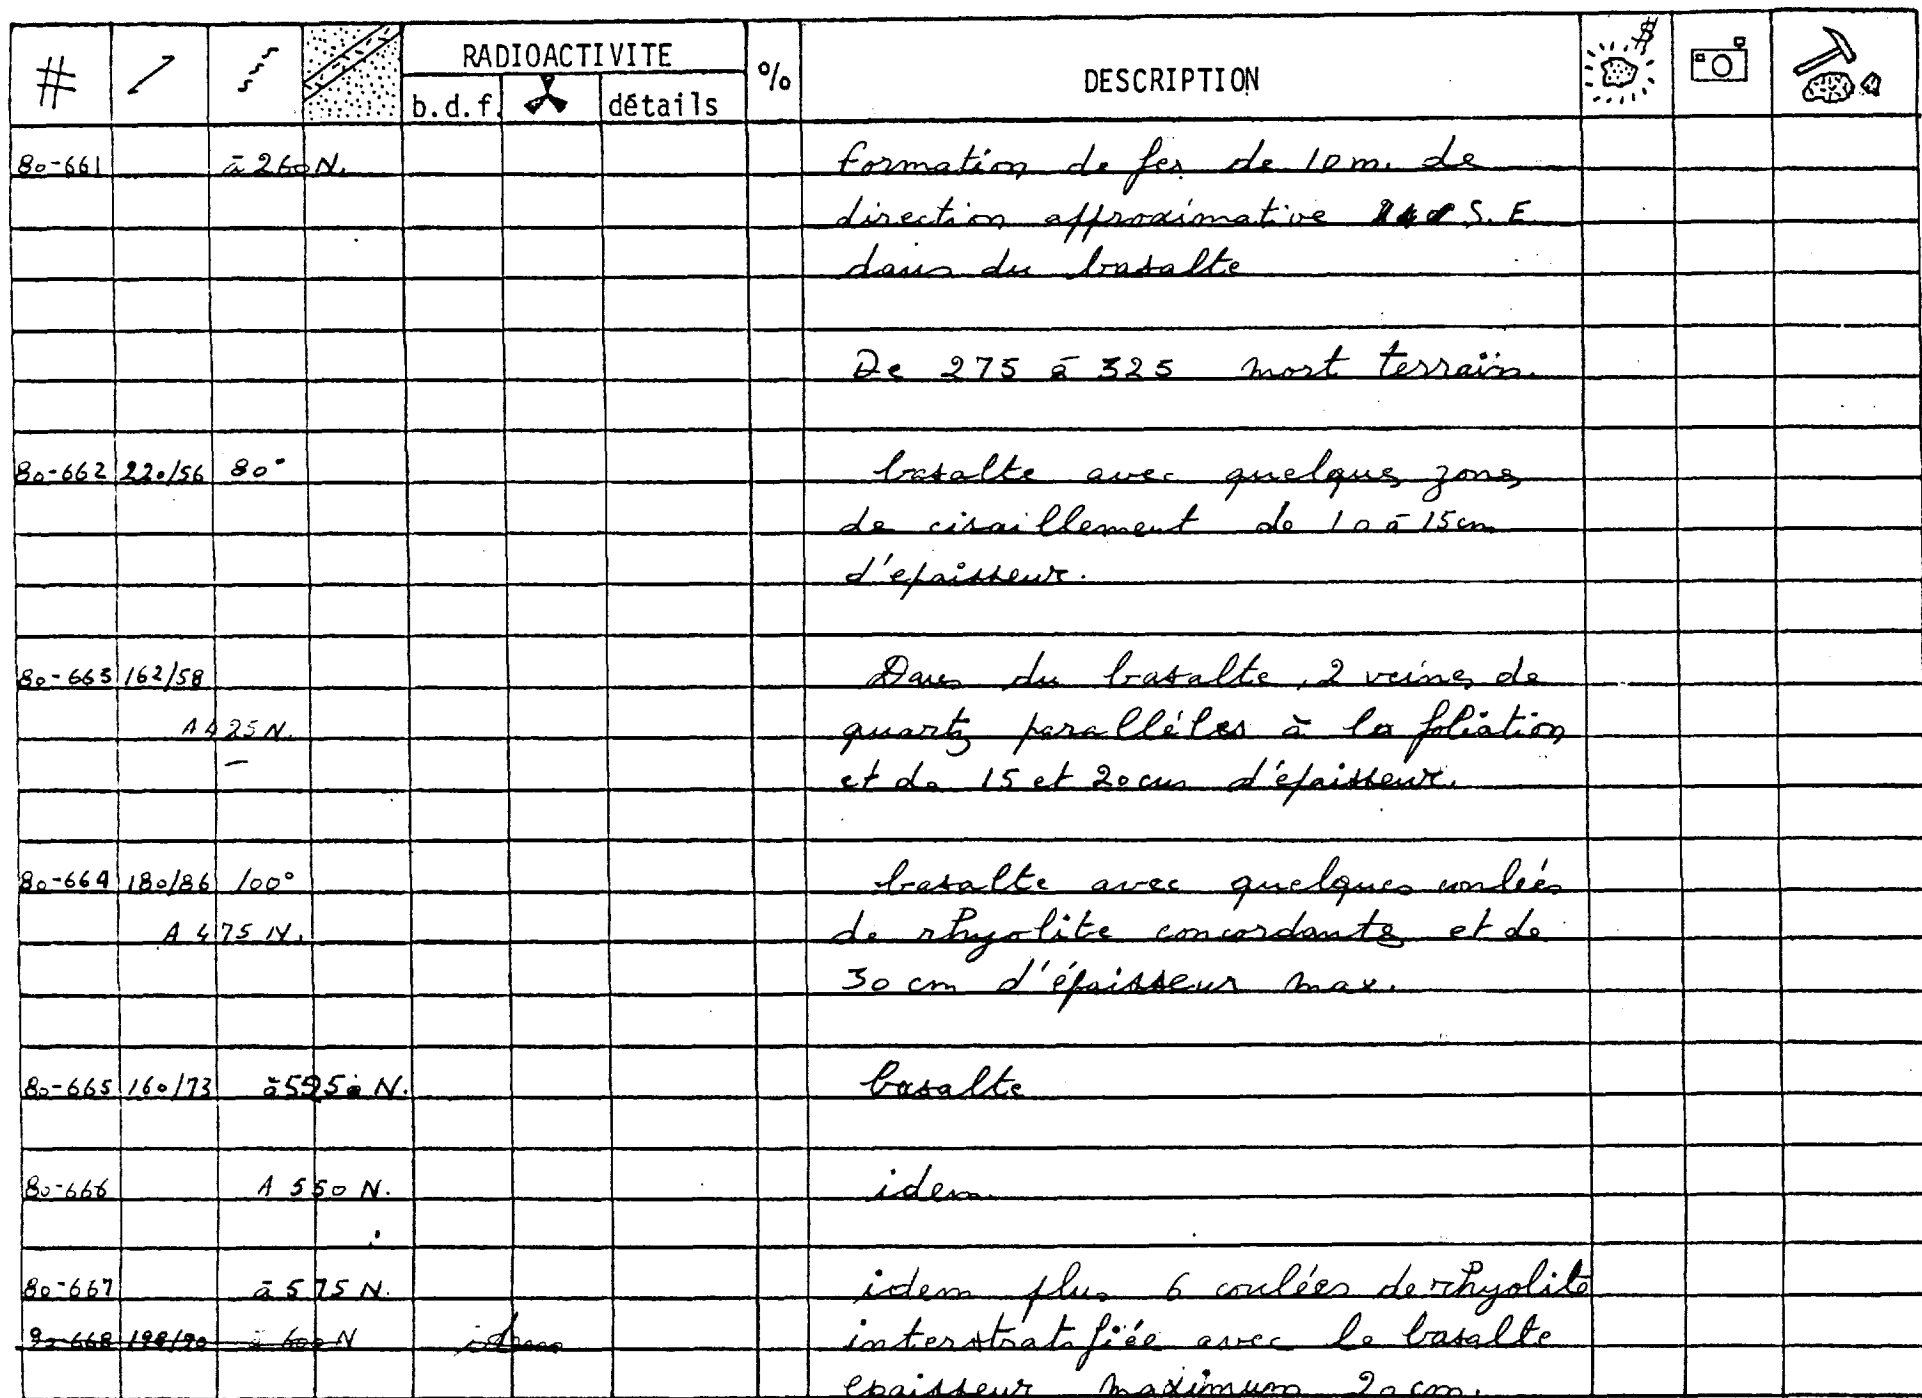 # RADIOACTIVITE % DESCRIPTION $
b.d.f. détails
80-661 à 260 N. formation de fer de 10 m. de
direction approximative S.E
dans du basalte
De 275 à 325 mort terrain.
80-662 220/56 80° basalte avec quelques zones
de cisaillement de 10 à 15 cm
d'epaisseur.
80-663 162/58 Dans du basalte, 2 veines de
A 425 N. quartz parallèles à la foliation
et de 15 et 20 cm d'épaisseur.
80-664 180/86 100° basalte avec quelques coulées
A 475 N. de rhyolite concordantes et de
30 cm d'épaisseur max.
80-665 160/73 basalte
80-666 A 550 N. idem
80-667 à 575 N. idem plus 6 coulées de rhyolite
80-668 à 600 N idem interstratifiée avec le basalte
epaisseur maximum 20 cm.